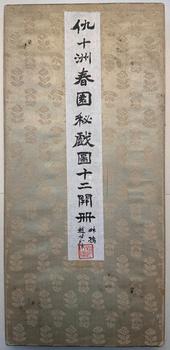 仇十洲春園秘戲圖十二開冊